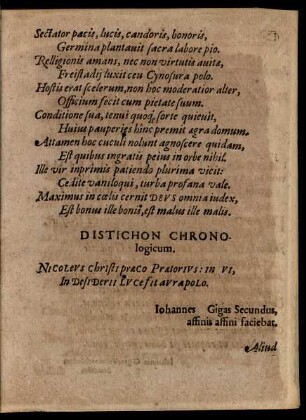 Sectator pacis, lucis, candoris, honoris,
Germina plantavit sacra labore pio.
Relligionis amans, nec non virtutis avitæ,
Freistadij luxit ceu Cynosura polo.
Hostis erat scelerum, non hoc moderatior alter,
Officium fecit cum pietate suum.
Conditione sua, tenui quoq; sorte quievit,
Huius pauperies hinc premit agra domum.
Attamen hoc cuculi nolunt agnoscere quidam,
Est quibus ingratis peius in orbe nihil.
Ille vir inprimis patiendo plurima vicit:
Cedite vaniloqui, turba profana vale.
Maximus in cœlis cernit DEVS omnia iudex,
Est bonus ille bonis, est malus ille malis.
DISTICHON CHRONO-
logicum.
NICOLEVS Christi præCo Prætorivs: in VI,
In DesIDerII LVCe fit avra polo.
Iohannes Gigas Secundus,
affinis affini faciebat.
Aliud